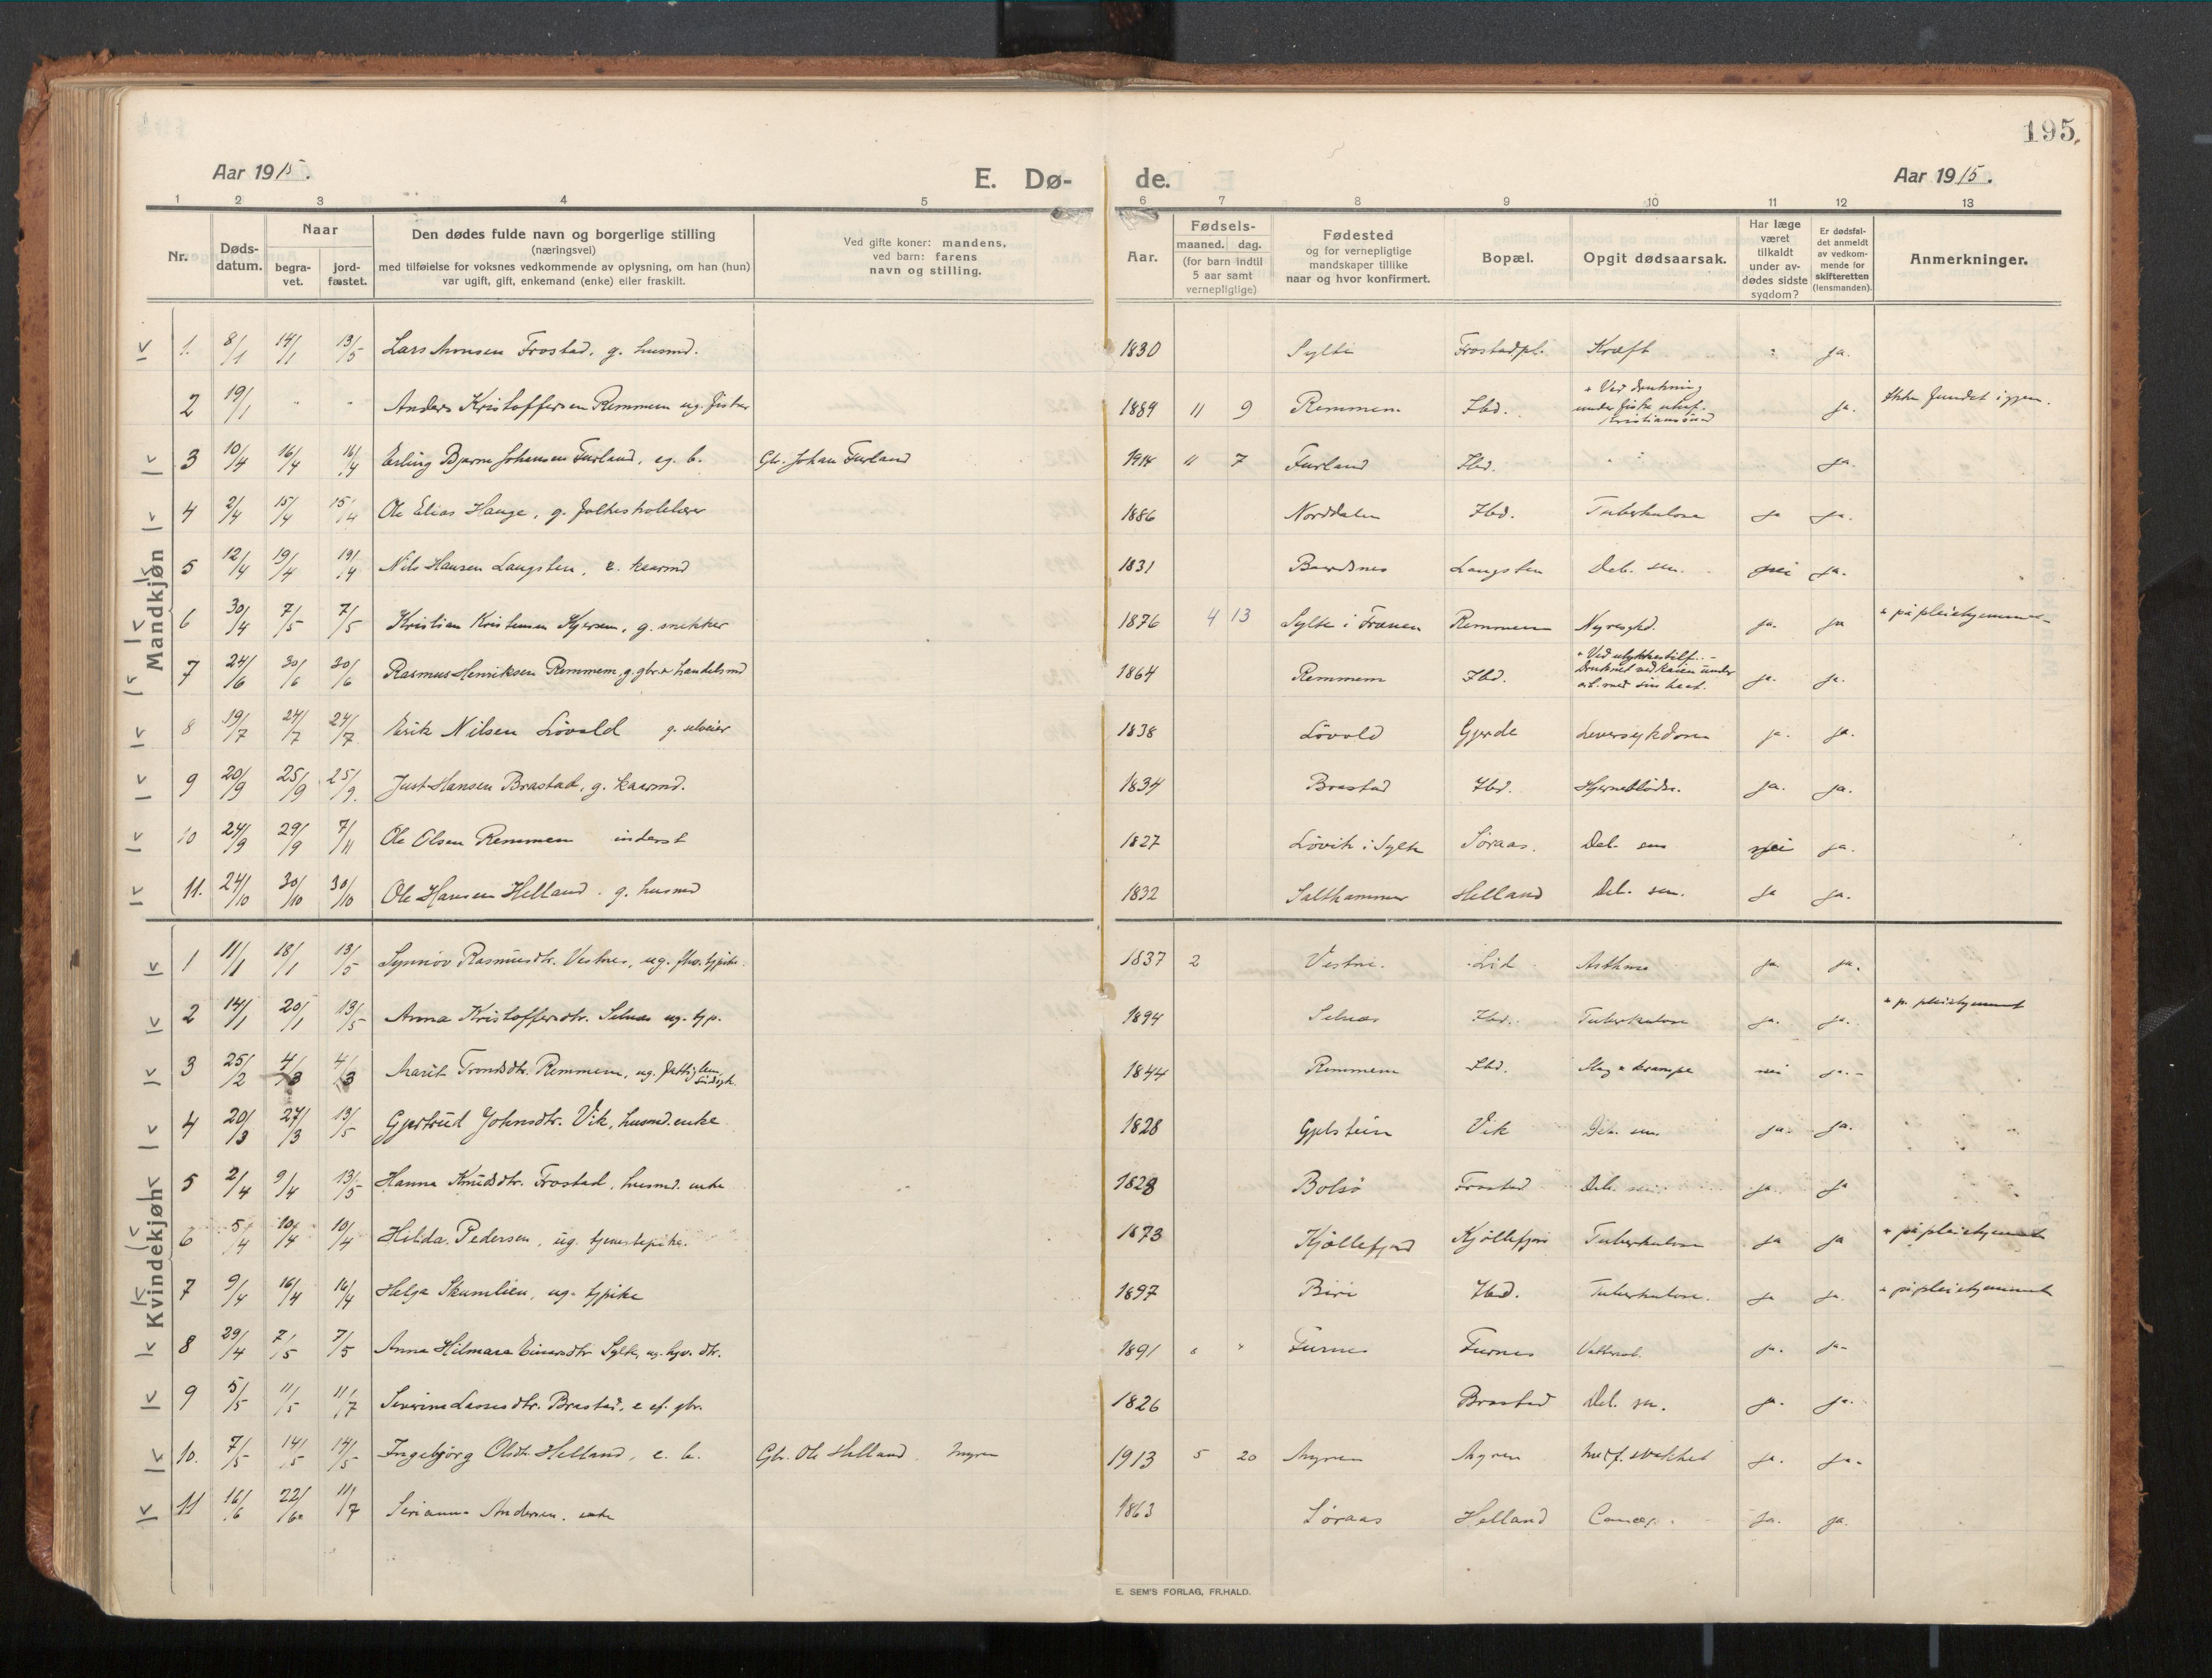 195.
Aar 1915. E. Dø- de. Aar 1915.
1 2 3 4 5 6 7 8 9 10 11 12 13
Nr. Døds-datum. Naar begra-vet. jord-fæstet. Den dødes fulde navn og borgerlige stilling (næringsvei) med tilføielse for voksnes vedkommende av oplysning, om han (hun) var ugift, gift, enkemand (enke) eller fraskilt. Ved gifte koner: mandens, ved barn: farens navn og stilling. Aar. Fødsels- maaned. dag. (for barn indtil 5 aar samt vernepligtige) Fødested og for vernepligtige mandskaper tillike naar og hvor konfirmert. Bopæl. Opgit dødsaarsak. Har læge været tilkaldt under av-dødes sidste sygdom? Er dødsfal-det anmeldt av vedkom-mende for skifteretten (lensmanden). Anmerkninger.
Mandkjøn
1. 8/1 14/1 13/5 Lars Monsen Frostad, g. husmd. 1830 Sylte Frostadpl. Kræft " ja.
2 19/1 " " Anders Kristoffersen Remmem ug. fisker 1884 11 9 Remmem Ibd. + Ved drukning under fiske utenf. Kristiansund ja. Ikke fundet igjen.
3 10/4 16/4 16/4 Erling Bjarne Johansen Furland, eg. b. Gbr. Johan Furland 1914 11 7 Furland Ibd. " " ja.
4 2/4 15/4 15/4 Ole Elias Hauge, g. folkeskolelærer 1886 Norddalen Ibd. Tuberkulose ja ja.
5 12/4 19/4 19/4 Nils Hansen Langsten, e. kaarmd 1831 Baardsnes Langsten Deb. sen. nei ja.
6 30/4 7/5 7/5 Kristian Kristensen Kjersem, g. snekker 1876 4 13 Sylte i Frænen Remmem Nyresygd. ja. ja + på pleiehjemmet
7 24/6 30/6 30/6 Rasmus Henriksen Remmem, g. gbr. & handelsmd 1864 Remmem Ibd. + Ved ulykkestilf. - Druknet ved kaien under arb. med sin baat. ja. ja.
8 19/7 24/7 24/7 Erik Nilsen Løvold g. selveier 1838 Løvold Gjerde Leversykdom ja. ja.
9 20/9 25/9 25/9. Just Hansen Brastad, g. kaarmd. 1834 Brastad Ibd. Hjerneblødn. ja. ja.
10 24/9 29/9 7/11 Ole Olsen Remmem inderst 1827 Løvik i Sylte Søraas. Deb. sen nei ja.
11. 24/10 30/10 30/10 Ole Hansen Helland. g. husmd 1832 Salthammer Helland Deb. sen. ja ja.
Kvindekjøn
1 11/1 18/1 13/5 Synnøv Rasmusdtr. Vestnes, ug. 1837 2 Vestnes. Lid Asthma ja. ja.
2 14/1 20/1 13/5 Anna Kristoffersdtr. Selnes ug. tjp. 1894 Selnes Ibd. Tuberkulose ja. ja. + p. pleiehjemmet
3 25/2 4/3 4/3 Marit Trondsdtr. Remmem, ug. fattiglem, sindsyk. 1844 Remmem Ibd. Slag & krampe nei ja.-
4 20/3 27/3 13/5 Gjertrud Johnsdtr. Vik, husmd. enke 1828 Gjelstein Vik Deb. sen. ja. ja.
5 2/4 9/4 13/5 Hanna Knudsdtr. Frostad, husmd. enke 1828 Bolsø Frostad Deb. sen. ja. ja
6 5/4 10/4 10/4 Hilda Pedersen, ug. tjenestepike. 1873 Kjøllefjord Kjøllefjord Tuberkulose ja ja + på pleiehjemmet
7 9/4 16/4 16/4 Helga Skumlien, ug. tjpike 1897 Biri Ibd. Tuberkulose. ja ja. + på pleiehjemmet
8 29/4 7/5 7/5 Anna Hilmara Einarsdtr Sylte, ug. dtr. 1891 Furnes Furnes Vattersot. ja. ja-
9 5/5 11/5 11/7 Severine Lassesdtr. Brastad, e ef. gbr. 1826 Brastad Deb. sen. ja. ja.
10. 7/5 14/5 14/5 Ingebjørg Olsdtr. Helland, e. b. Gbr. Ole Helland, Myren 1913 5 20 Myren Myren Medf. svakhet ja. ja-
11 16/6 22/6 11/7 Serianna Andersen. enke 1863 Søraas Helland Cancer. ja. ja.
E. SEM'S FORLAG, FR.HALD.